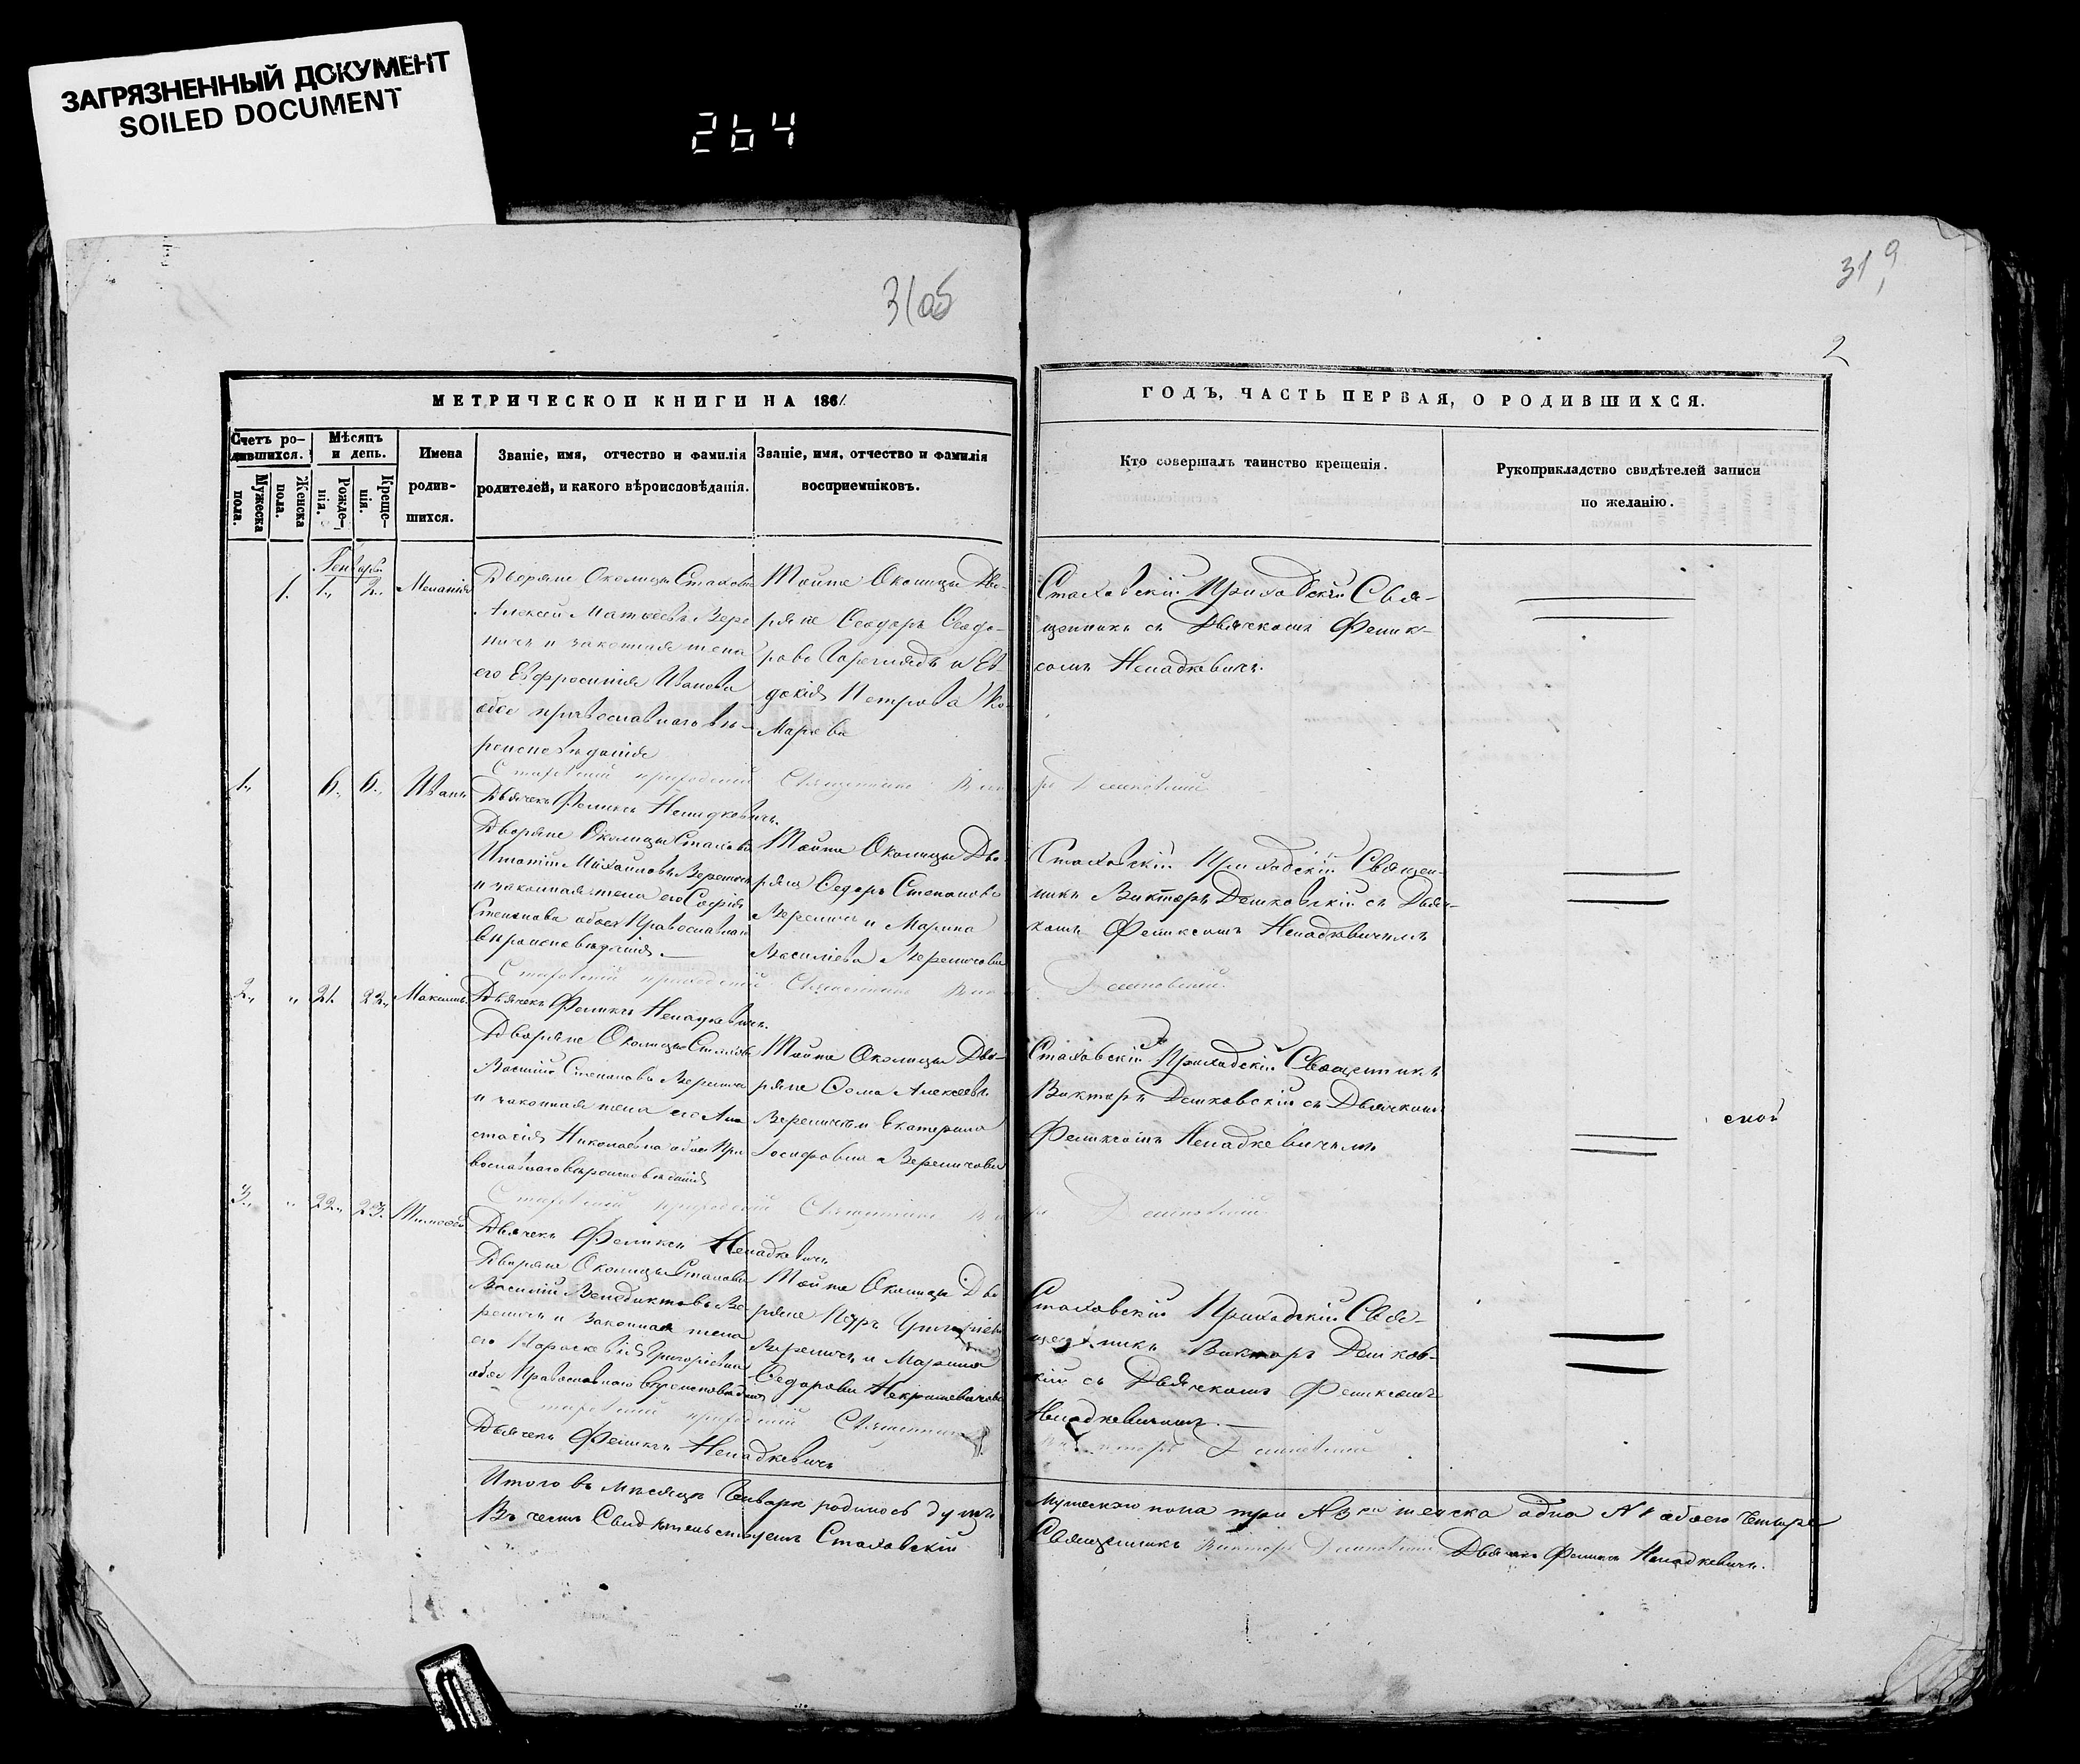 ЗАГРЯЗНЕННЫЙ ДОКУМЕНТ
SOILED DOCUMENT
264
31об
319
2
МЕТРИЧЕСКОЙ КНИГИ НА 1861
ГОДЪ, ЧАСТЬ ПЕРВАЯ, О РОДИВШИХСЯ.
Счетъ ро-
дившихся.
Мужеска
пола.
Женска
пола.
Мѣсяцъ
и день.
Рожде-
нія.
Креще-
нія.
Имена
родив-
шихся.
Званіе, имя, отчество и фамилія
родителей, и какого вѣроисповѣданія.
Званіе, имя, отчество и фамилія
воспріемниковъ.
Кто совершалъ таинство крещенія.
Рукоприкладство свидѣтелей записи
по желанію.
Генварь
1. 1. 2. Меланія
Дворяне Околицы Стахова
Алексей Матвеевъ Вере
ничъ и законная жена
его Евфросинія Иванова
обое православнаго вѣ-
роисповѣданія
Тойже Околицы Дво-
ряне Феодоръ Феодо-
ровъ и Ев-
докія Петрова Ко-
марова
Стаховскій Приходскій Свя-
щенникъ съ Дьячкомъ Фелик-
сомъ Ненадкевичъ.
Стаховскій приходскій Священникъ Викторъ Дешковскій
1. 6. 6. Иванъ
Дьячекъ Феликсъ Ненадкевичъ.
Дворяне Околицы Стахова
Игнатій Михайловъ Вереничъ
и законная жена его Софія
Степанова обоя Православнаго
вѣроисповѣданія.
Тойже Околицы Дво-
ряне Федоръ Степановъ
Вереничъ и Марина
Васильева Вереничова
Стаховскій Приходскій Священ-
никъ Викторъ Дешковскій съ Дьяч-
комъ Феликсомъ Ненадкевичемъ
Стаховскій приходскій Священникъ Дешковскій.
2. " 21. 22. Максимъ
Дьячекъ Феликсъ Ненадкевичъ.
Дворяне Околицы Стахова
Василій Степановъ Вереничъ
и законная жена его Ана
стасія Николаевна обоя Пра
вославнаго вѣроисповѣданія
Тойже Околицы Дво-
ряне Фома Алексеевъ
Вереничъ и Екатерина
Іосифовна Вереничова
Стаховскій Приходскій Священникъ
Викторъ Дешковскій съ Дьячкомъ
Феликсомъ Ненадкевичемъ
ской
Стаховскій приходскій Священникъ Дешковскій.
3. " 22. 23. Тимофей
Дьячекъ Феликсъ Ненадкевичъ
Дворяне Околицы Стахова
Василій Венедиктовъ Ве-
реничъ и Законная жена
его Параскевія Григорьевна
обоя Православнаго вѣроисповѣданія
Тойже Околицы Дво
ряне Петръ
Вереничъ и Марина
Федорова Некрашевичова
Стаховскій Приходскій Свя-
щенникъ Викторъ Дешков-
скій съ Дьячкомъ Феликсомъ
Ненадкевичемъ.
Стаховскій приходскій Священникъ
Викторъ Дешковскій
Дьячекъ Феликсъ Ненадкевичъ
Итого въ мѣсяцѣ Генварѣ родилось душъ
Мужескаго пола три №3 женска одна №1 обоего Четыре
Въ чемъ Свидѣтельствуемъ Стаховскій
Священникъ Викторъ Дешковскій Дьячекъ Феликсъ Ненадкевичъ.